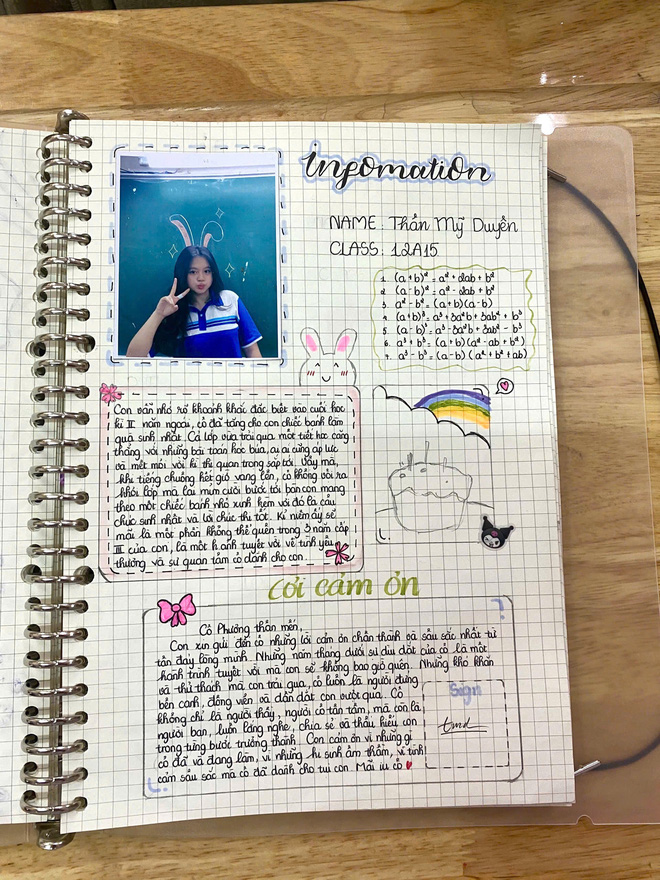 infomation
NAME: Thần Mỹ Duyên
CLASS: 12A15
1. (a+b)² = a² + 2ab + b²
2. (a-b)² = a² - 2ab + b²
3. a² - b² = (a+b)(a-b)
4. (a+b)³ = a³ + 3a²b + 3ab² + b³
5. (a-b)³ = a³ - 3a²b + 3ab² - b³
6. a³ + b³ = (a+b)(a² - ab + b²)
7. a³ - b³ = (a-b)(a² + ab + b²)
Con vẫn nhớ rõ khoảnh khắc đặc biệt vào cuối học
kì II năm ngoái, cô đã tặng cho con chiếc bánh làm
quà sinh nhật. Cả lớp vừa trải qua một tiết học căng
thẳng với những bài toán hóc búa, ai ai cũng áp lực
và mệt mỏi với kì thi quan trọng sắp tới. Vậy mà,
khi tiếng chuông hết giờ vang lên, cô không vội ra
khỏi lớp mà lại mỉm cười bước tới bàn con mang
theo một chiếc bánh nhỏ xinh kèm với đó là câu
chúc sinh nhật và lời chúc thi tốt. Kỉ niệm ấy sẽ
mãi là một phần không thể quên trong 3 năm cấp
III của con, là một h.ảnh tuyệt vời về tình yêu
thương và sự quan tâm cô dành cho con.
Lời cảm ơn
Cô Phường thân mến,
Con xin gửi đến cô những lời cảm ơn chân thành và sâu sắc nhất từ
tận đáy lòng mình. Những năm tháng dưới sự dìu dắt của cô là một
hành trình tuyệt vời mà con sẽ không bao giờ quên. Những khó khăn
và thử thách mà con trải qua, cô luôn là người đứng
bên cạnh, động viên và dẫn dắt con vượt qua. Cô
không chỉ là người thầy, người cô tận tâm, mà còn là
người bạn, luôn lắng nghe, chia sẻ và thấu hiểu con
trong từng bước trưởng thành. Con cảm ơn vì những gì
cô đã và đang làm, vì những hi sinh âm thầm, vì tình
cảm sâu sắc mà cô đã dành cho tụi con. Mãi iu cô
Sign
tmd